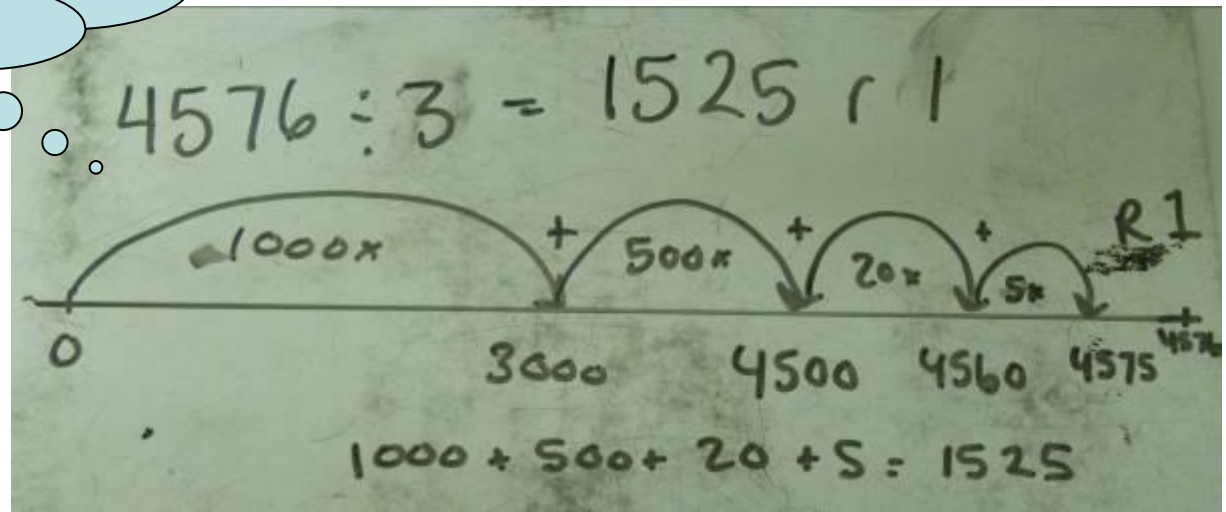 4576 ÷ 3 = 1525 r 1
1000x + 500x + 20x + 5x R1
0 3000 4500 4560 4575 4576
1000 + 500 + 20 + 5 = 1525